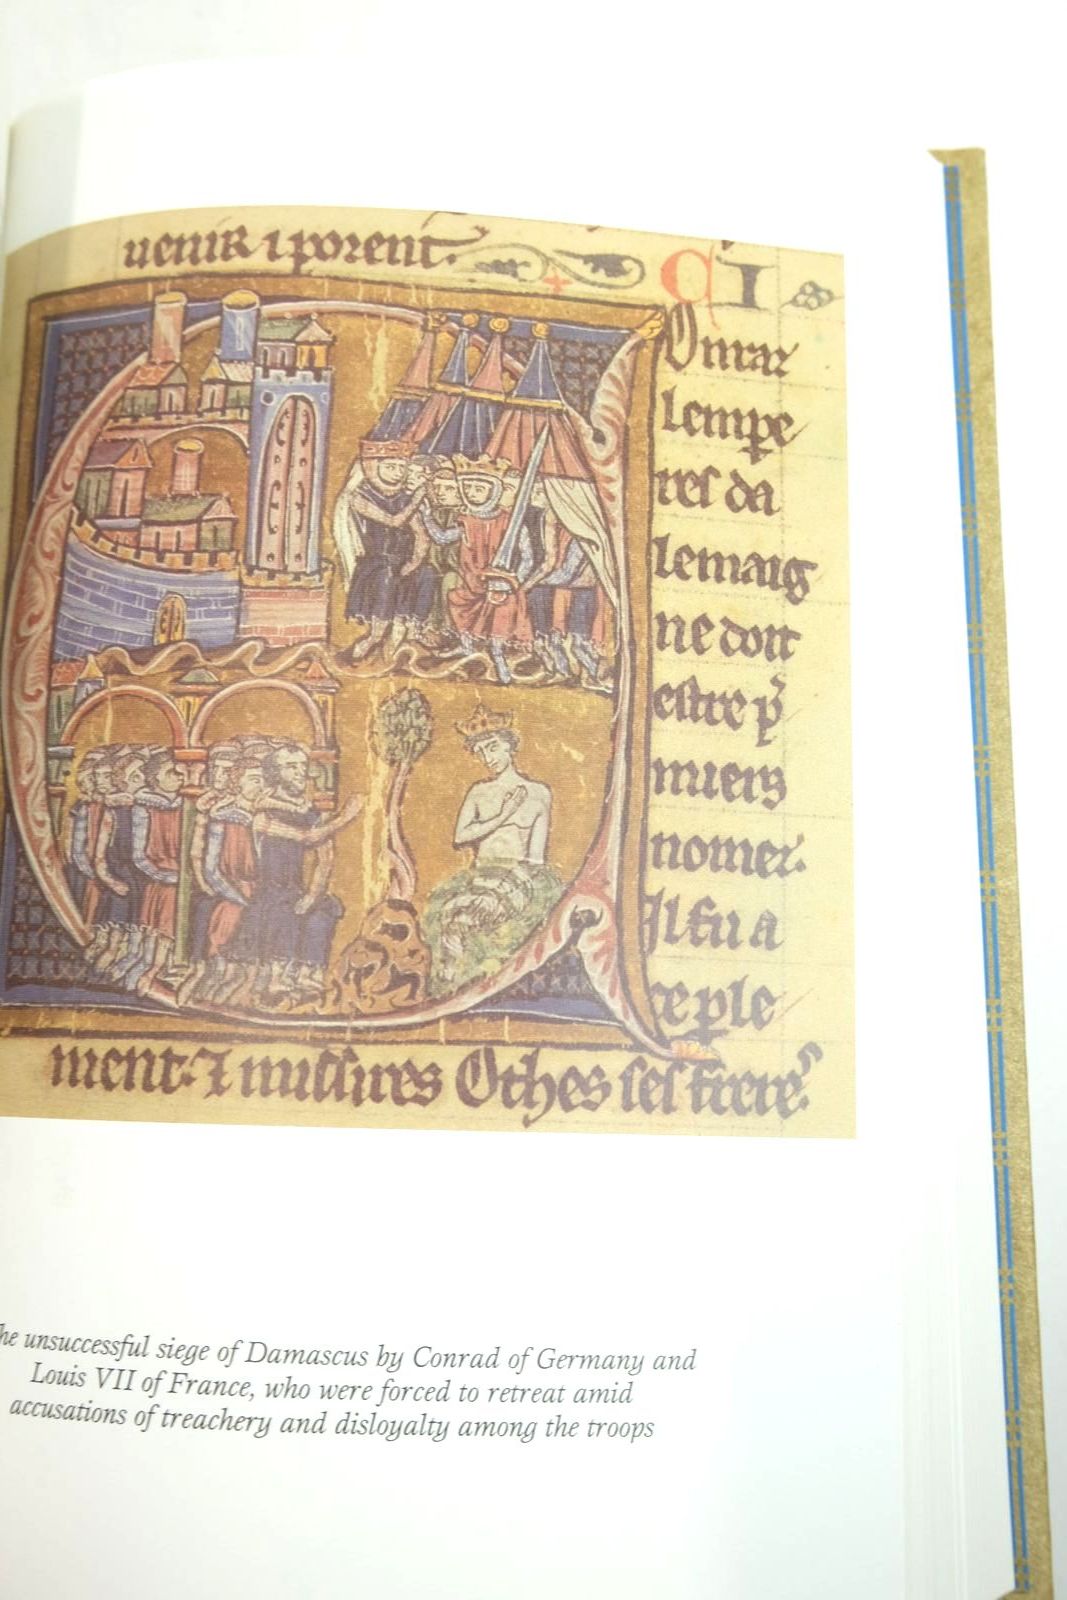 uenir ⁊ porent.
CI
Onraz
lempe
res da
lemaig
ne doit
estre p
miers
nomez.
Il fu a
ce ple
ment. ⁊ missires Othes ses frere
he unsuccessful siege of Damascus by Conrad of Germany and
Louis VII of France, who were forced to retreat amid
accusations of treachery and disloyalty among the troops